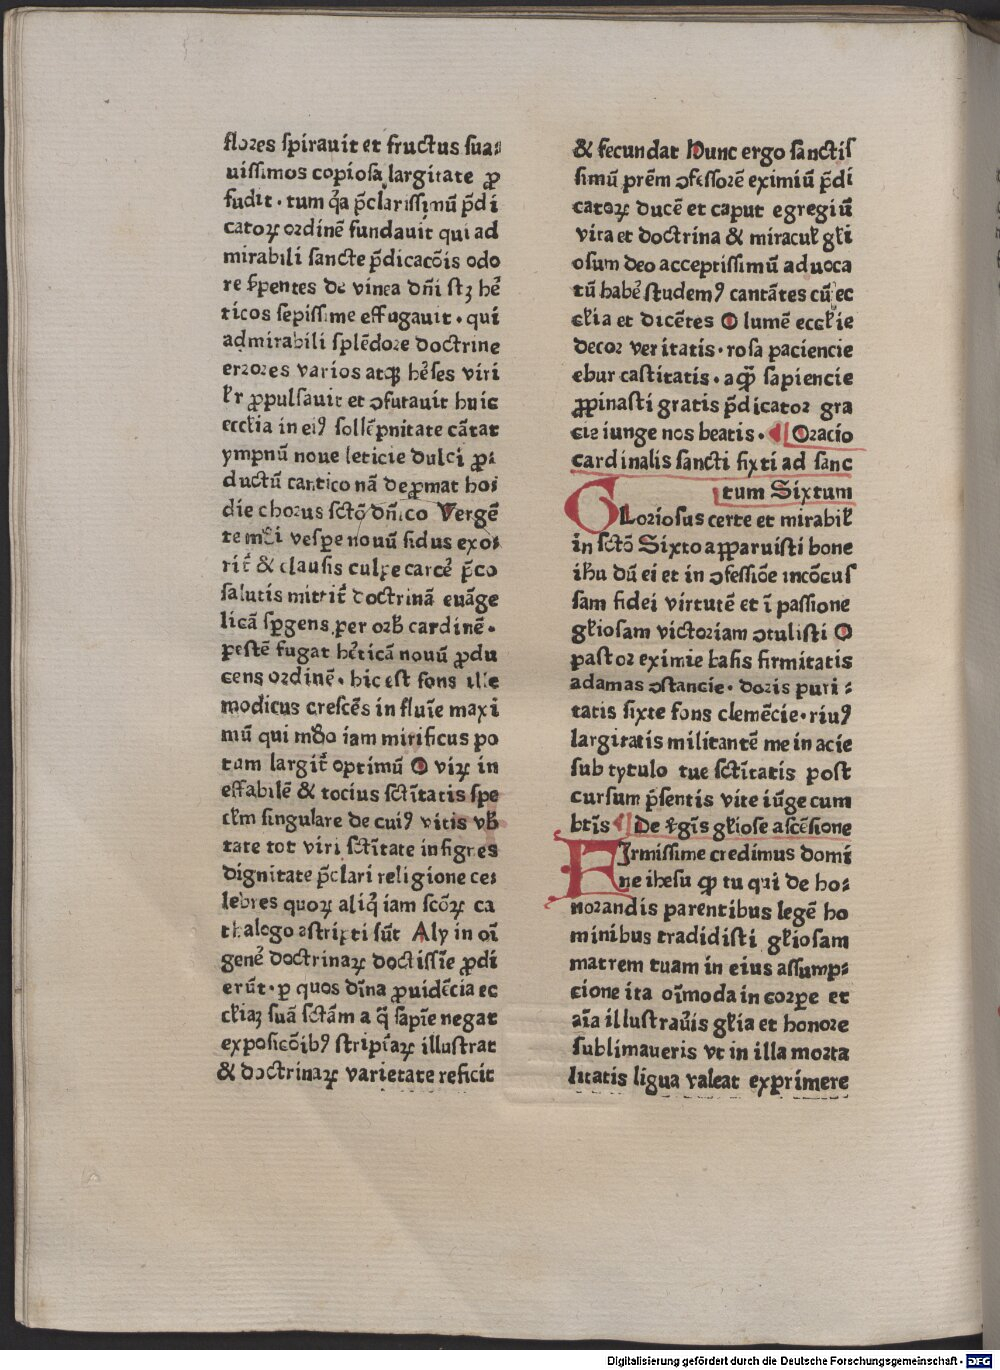 flores spirauit et fructus sua⸗
uissimos copiosa largitate ꝓ
fudit · tum q̇a p̄clarissimū p̄di
catoꝝ ordinē fundauit qui ad
mirabili sancte p̄dicacōis odo
re s̄pentes de vinea dn̄i stꝫ he᷒
ticos sepissime effugauit · qui
admirabili splēdore doctrine
errores varios atqꝫ he᷒ses viri
lr̄ ꝓpulsauit et ↄfutauit huic
eccƚia in eiꝰ sollēpnitate cātat
ympnū noue leticie dulci ꝓ⸗
ductū cantico nā depromat ho⸗
die chorus sctō dn̄ico Vergē⸗
te mūdi vespe nouū sidus exo⸗
rit᷑ & clausis culpe carce᷒ p̄co
salutis mittit᷑ doctrinā euāge
licā spgens per orb̄ cardinē ·
pestē fugat he᷒ticā nouū ꝓdu
cens ordinē · hic est fons ille
modicus crescēs in fluīe maxi
mū qui mō iam mirificus po
tum largit᷑ optimū O viꝝ in
effabilē & tocius sctītatis spe
cƚm singulare de cuiꝰ vitis vb̄
tate tot viri sctītate insignes
dignitate p̄clari religione ce⸗
lebres quoꝝ aliq̇ iam scōꝝ ca
thalogo ascripti sūt Aly in oī
gene᷒ doctrinaꝝ doctissīe ꝓdi
erūt · ꝑ quos dīna ꝓuidēcia ec
cƚiaꝫ suā sctām a q̄ sapīe negat
exposicōibꝰ scriptaꝝ illustrat
& doctrinaꝝ varietate reficit
& fecundat Hunc ergo sanctis
simū prēm ↄfessorē eximiū p̄di
catoꝝ ducē et caput egregiū
vita et doctrina & miracuƚ gƚi
osum deo acceptissimū aduoca
tū habe᷒ studemꝰ cantātes cū ec
cƚia et dicētes O lumē eccƚie
decor veritatis · rosa paciencie
ebur castitatis · aqꝫ sapiencie
ꝓpinasti gratis p̄dicator gra
cie iunge nos beatis · Oracio
cardinalis sancti sixti ad sanc
tum Sixtum
GLoriosus certe et mirabiƚ
in sctō Sixto apparuisti bone
ihu dū ei et in ↄfessiōe incōcus
sam fidei virtutē et ī passione
gƚiosam victoriam ↄtulisti O
pastor eximie basis firmitatis
adamas ↄstancie · doris puri⸗
tatis sixte fons clemēcie · riuꝰ
largitatis militantē me in acie
sub tytulo tue sctītatis post
cursum p̄sentis vite iūge cum
btīs De v̓gīs gƚiose ascēsione
FIrmissime credimus domi
ne ihesu qꝫ tu qui de ho⸗
norandis parentibus legē ho
minibus tradidisti gƚiosam
matrem tuam in eius assump⸗
cione ita oīmoda in corpe et
aīa illustraūis gƚia et honore
sublimaueris vt in illa morta
litatis ligua valeat exprimere
Digitalisierung gefördert durch die Deutsche Forschungsgemeinschaft - DFG